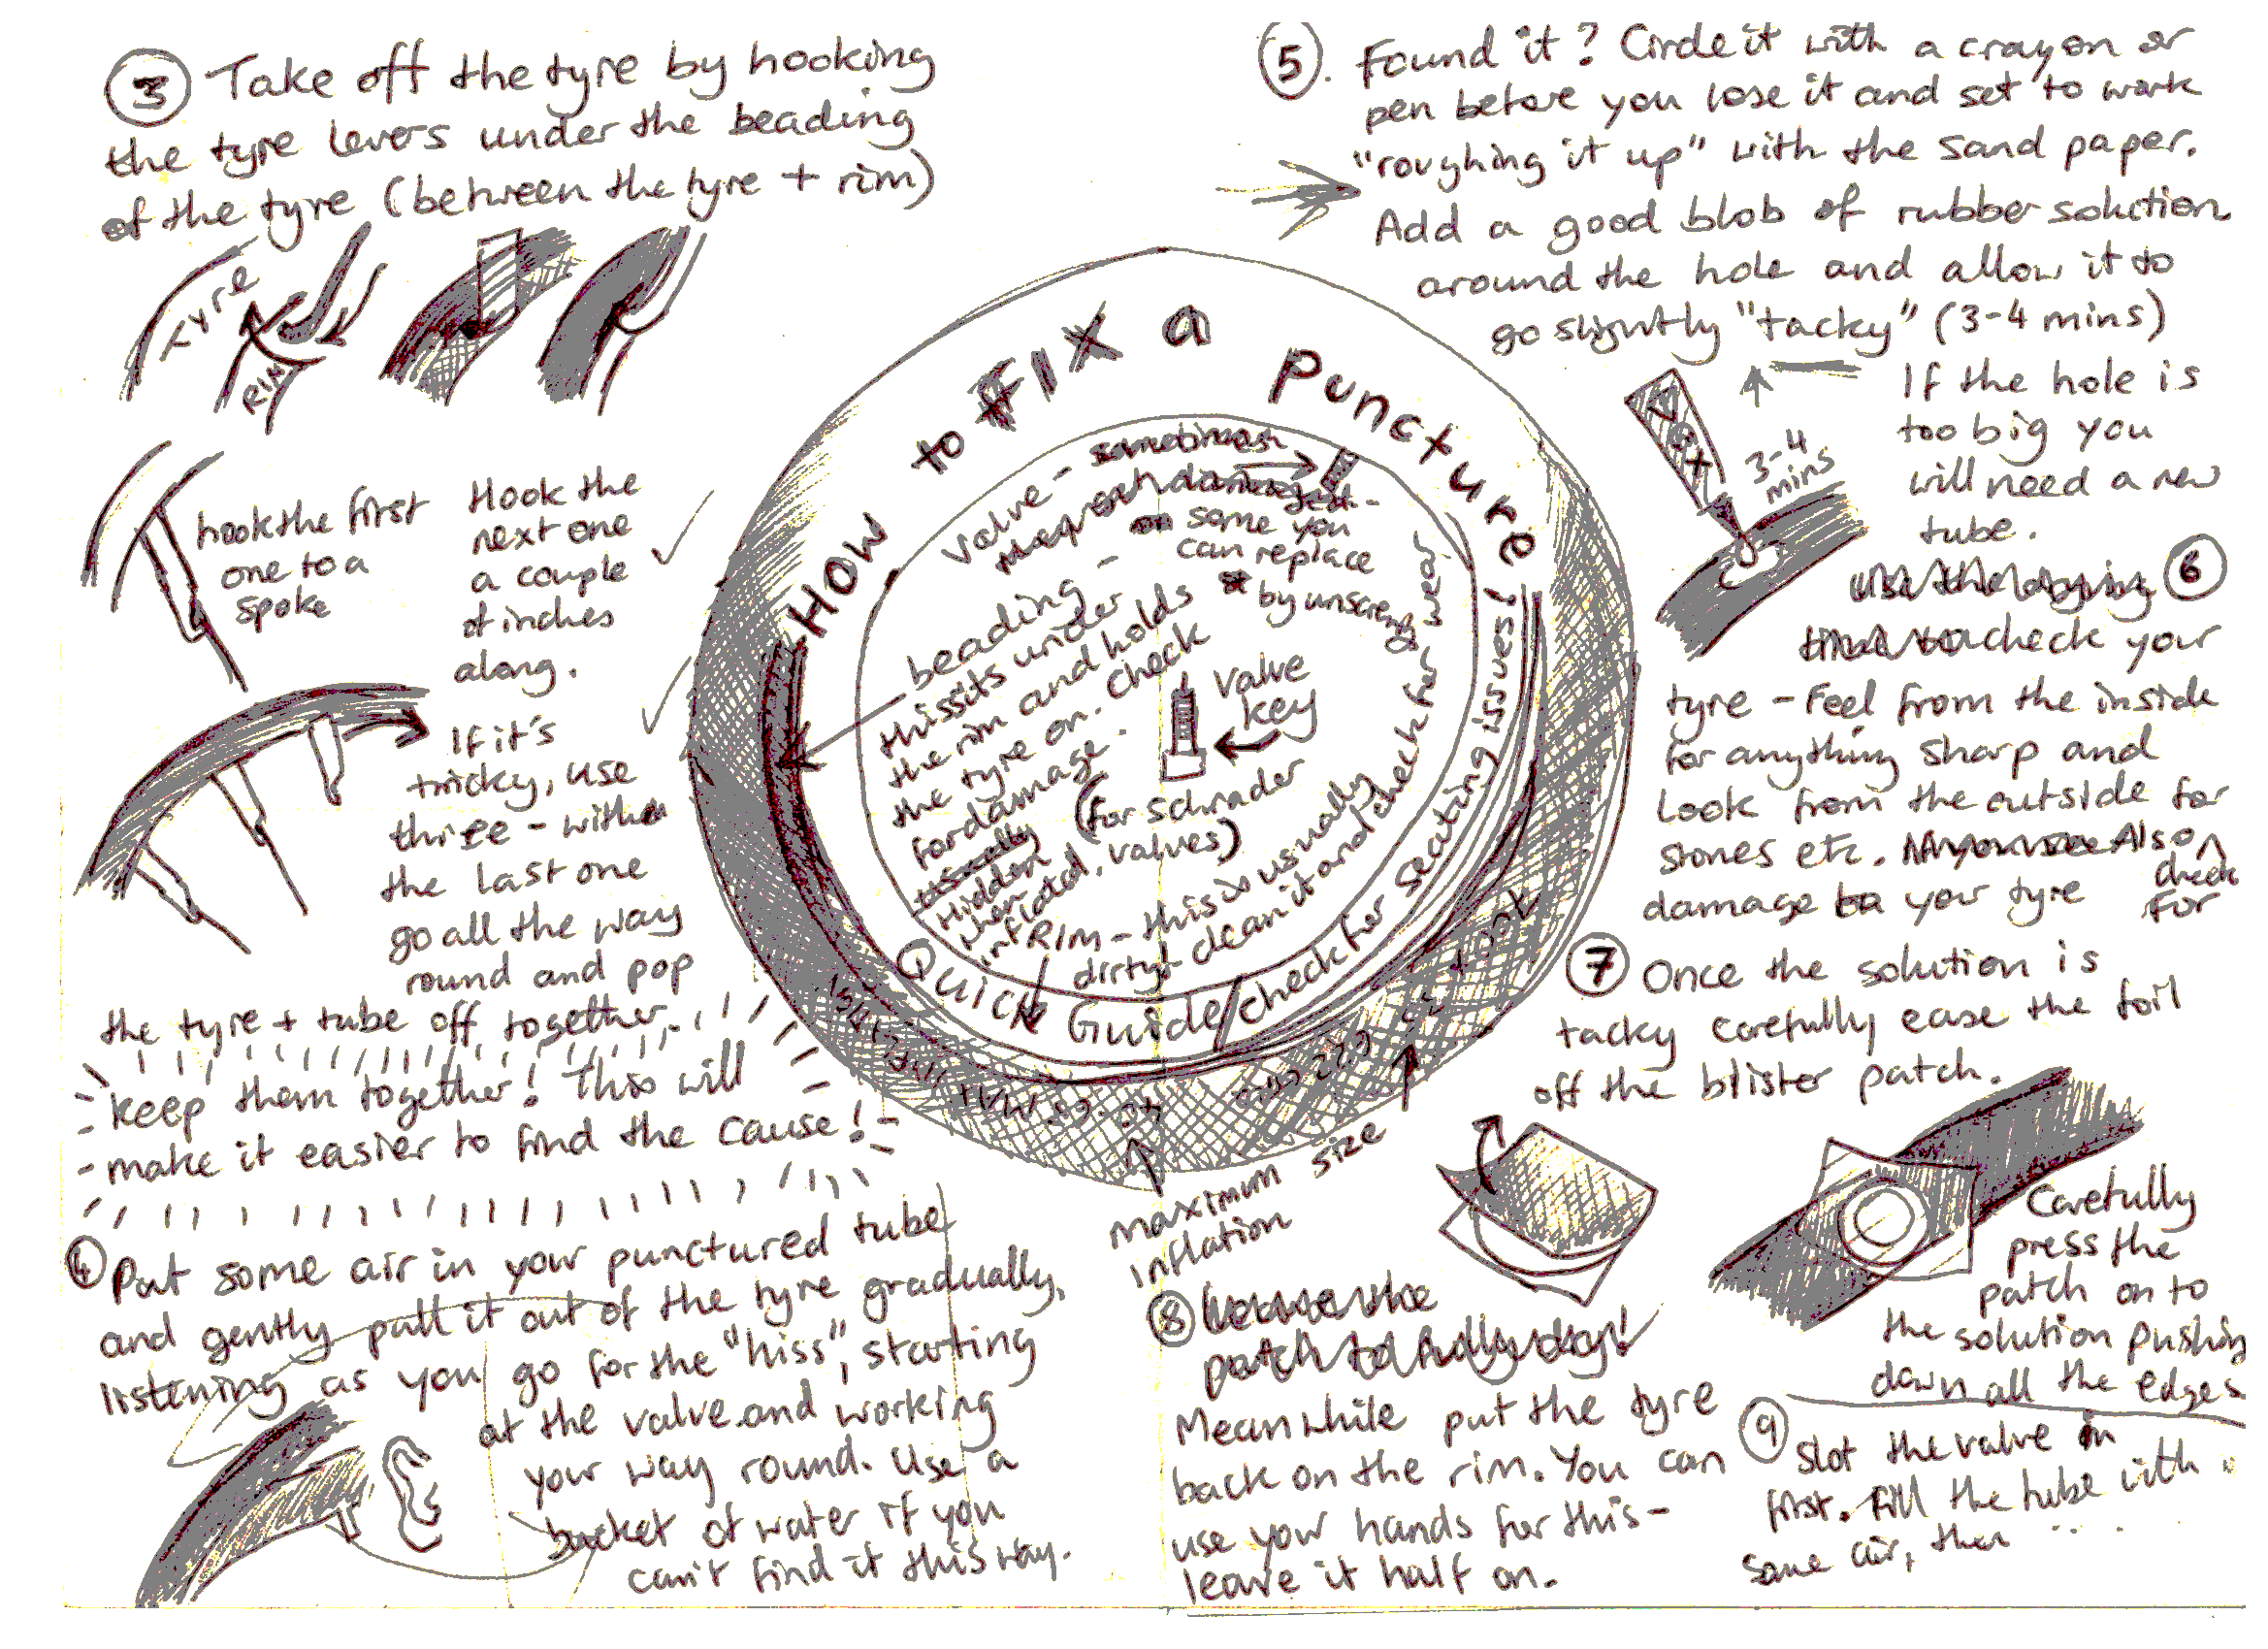 ③ Take off the tyre by hooking
the tyre levers under the beading
of the tyre (between the tyre + rim)
tyre
RIM
hook the first
one to a
spoke
Hook the
next one
a couple
of inches
along.
If it's
tricky, use
three - with
the last one
go all the way
round and pop
the tyre + tube off together.
keep them together! This will
make it easier to find the cause!
④ Put some air in your punctured tube
and gently pull it out of the tyre gradually,
listening as you go for the "hiss", starting
at the valve and working
your way round. Use a
bucket of water if you
can't find it this way.
How to FIX a Puncture!
Quick Guide / check for seating issues!
valve - sometimes
some you
can replace
by unscrewing
beading -
this sits under
the rim and holds
the tyre on. Check
for damage.
Hidden
when
inflated.
valve
key
(for Schrader
valves)
RIM - this is usually
dirty! clean it and check for wear
maximum
inflation
size
⑤. Found it? Circle it with a crayon or
pen before you lose it and set to work
"roughing it up" with the sand paper.
Add a good blob of rubber solution
around the hole and allow it to
go slightly "tacky" (3-4 mins)
3-4
mins
If the hole is
too big you
will need a new
tube.
⑥
check your
tyre - Feel from the inside
for anything sharp and
Look from the outside for
stones etc. Also
check
for
damage to your tyre
⑦ Once the solution is
tacky carefully ease the foil
off the blister patch.
Carefully
press the
patch on to
the solution pushing
down all the edges
⑧
Meanwhile put the tyre
back on the rim. You can
use your hands for this -
leave it half on.
⑨ Slot the valve in
first. Fill the tube with
some air, then ...